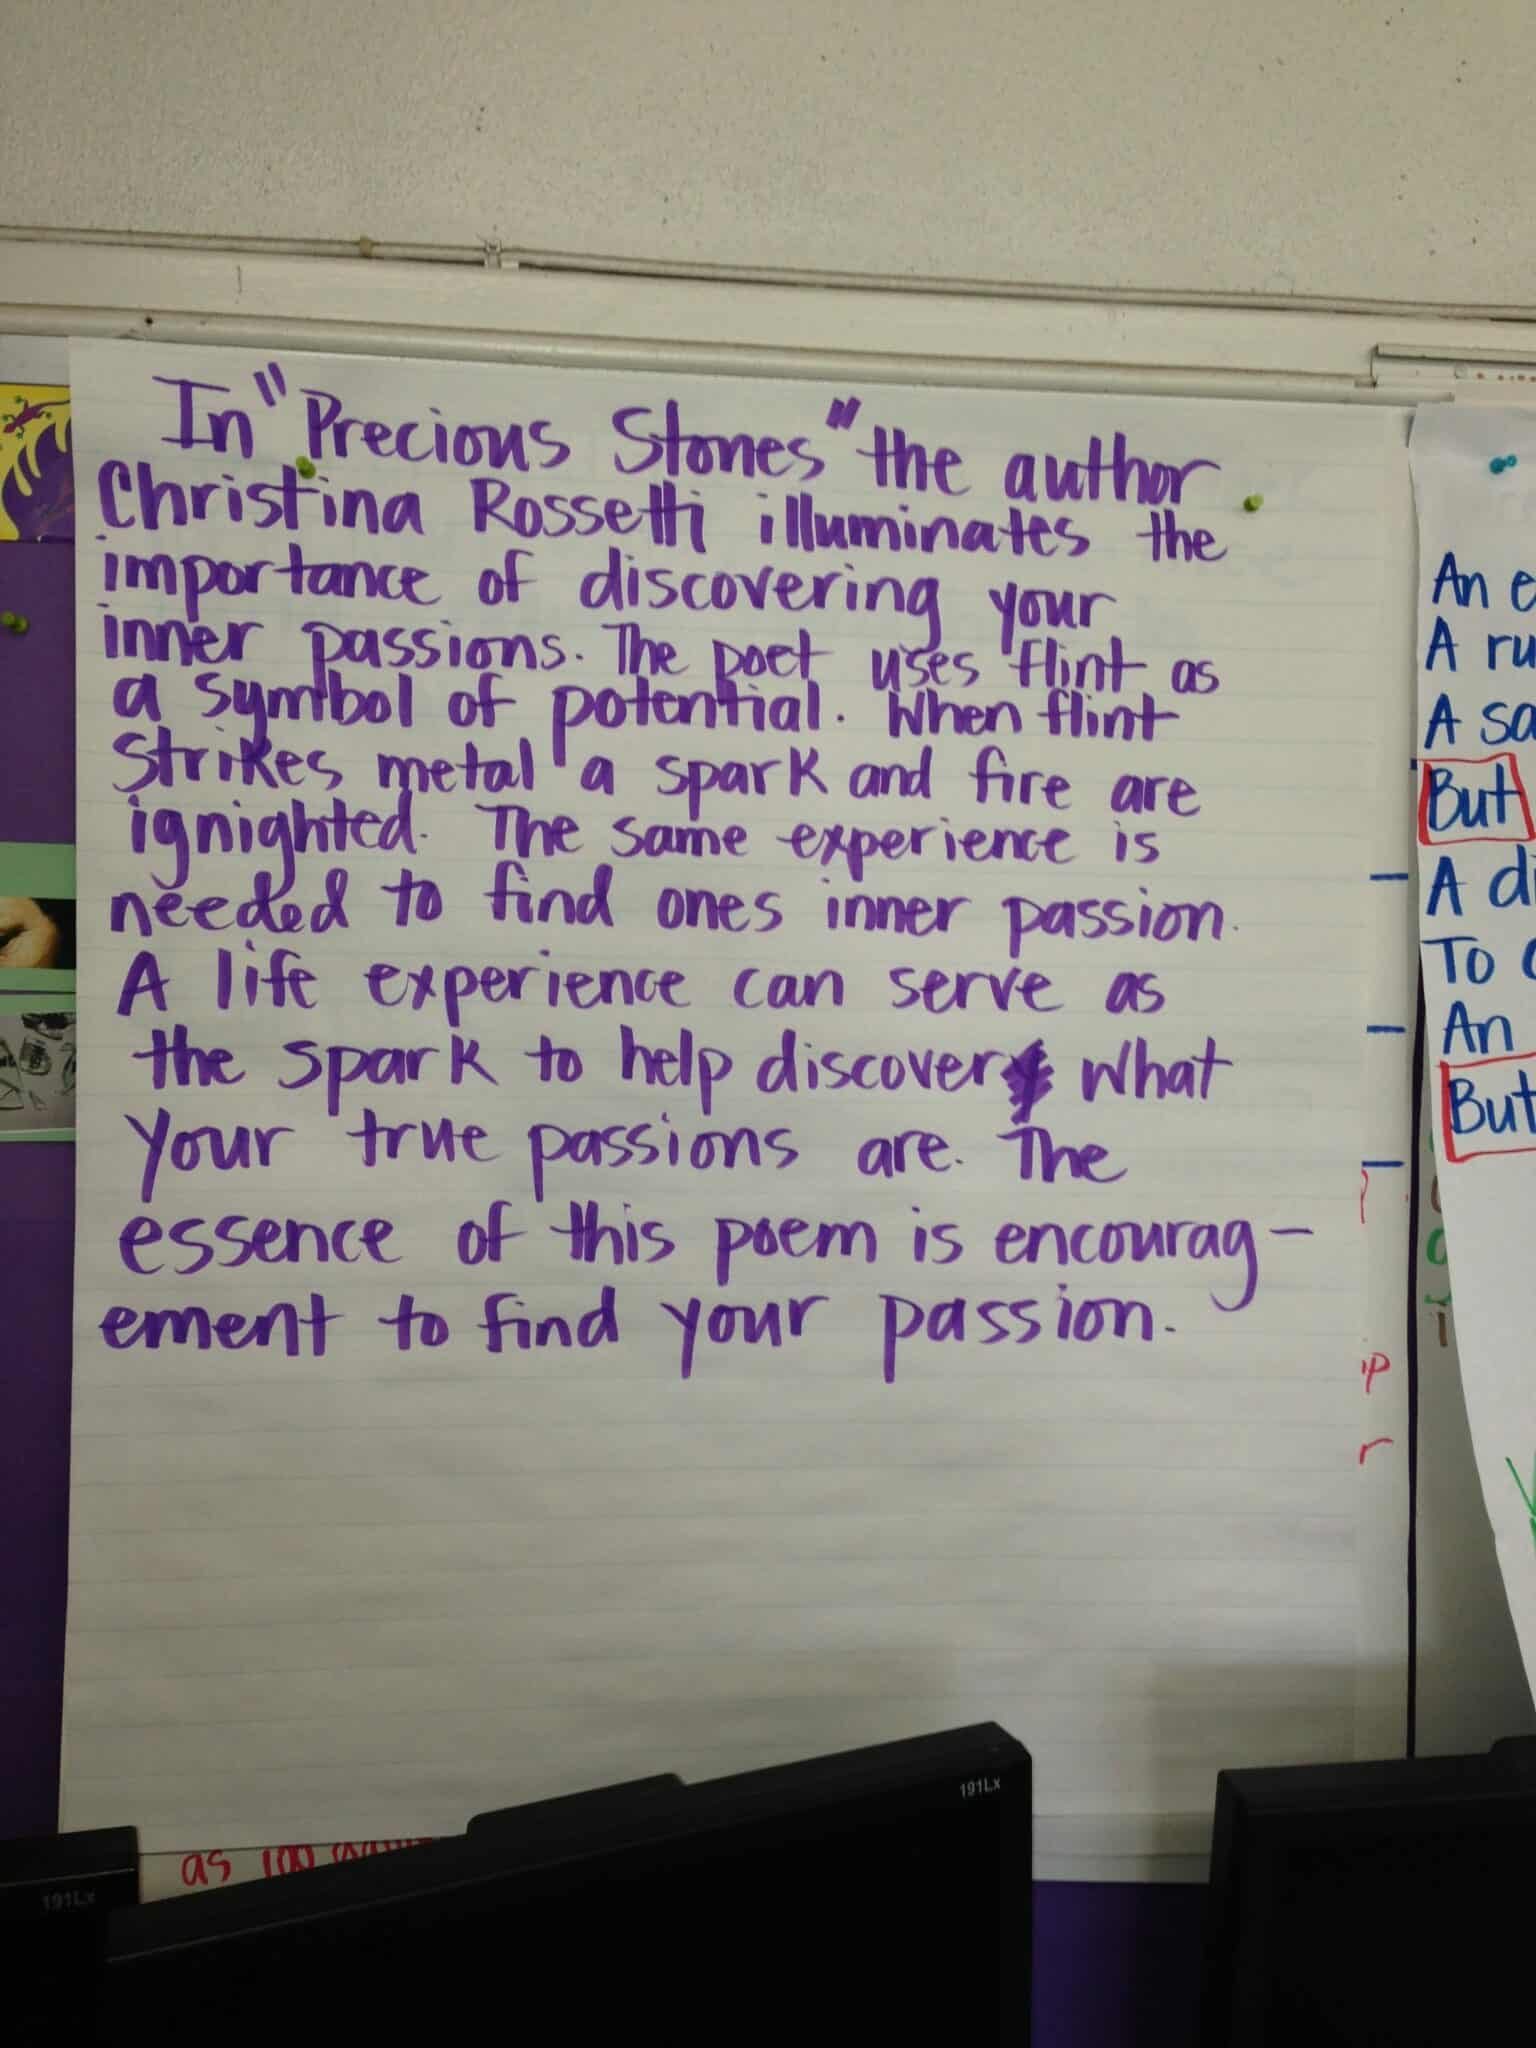 In "Precious Stones" the author
Christina Rossetti illuminates the
importance of discovering your
inner passions. The poet uses flint as
a symbol of potential. When flint
strikes metal a spark and fire are
ignighted. The same experience is
needed to find ones inner passion.
A life experience can serve as
the spark to help discover what
your true passions are. The
essence of this poem is encourag-
ement to find your passion.
An e
A ru
A sa
But
A di
To
An
But
p
r
as 100
191Lx
191Lx